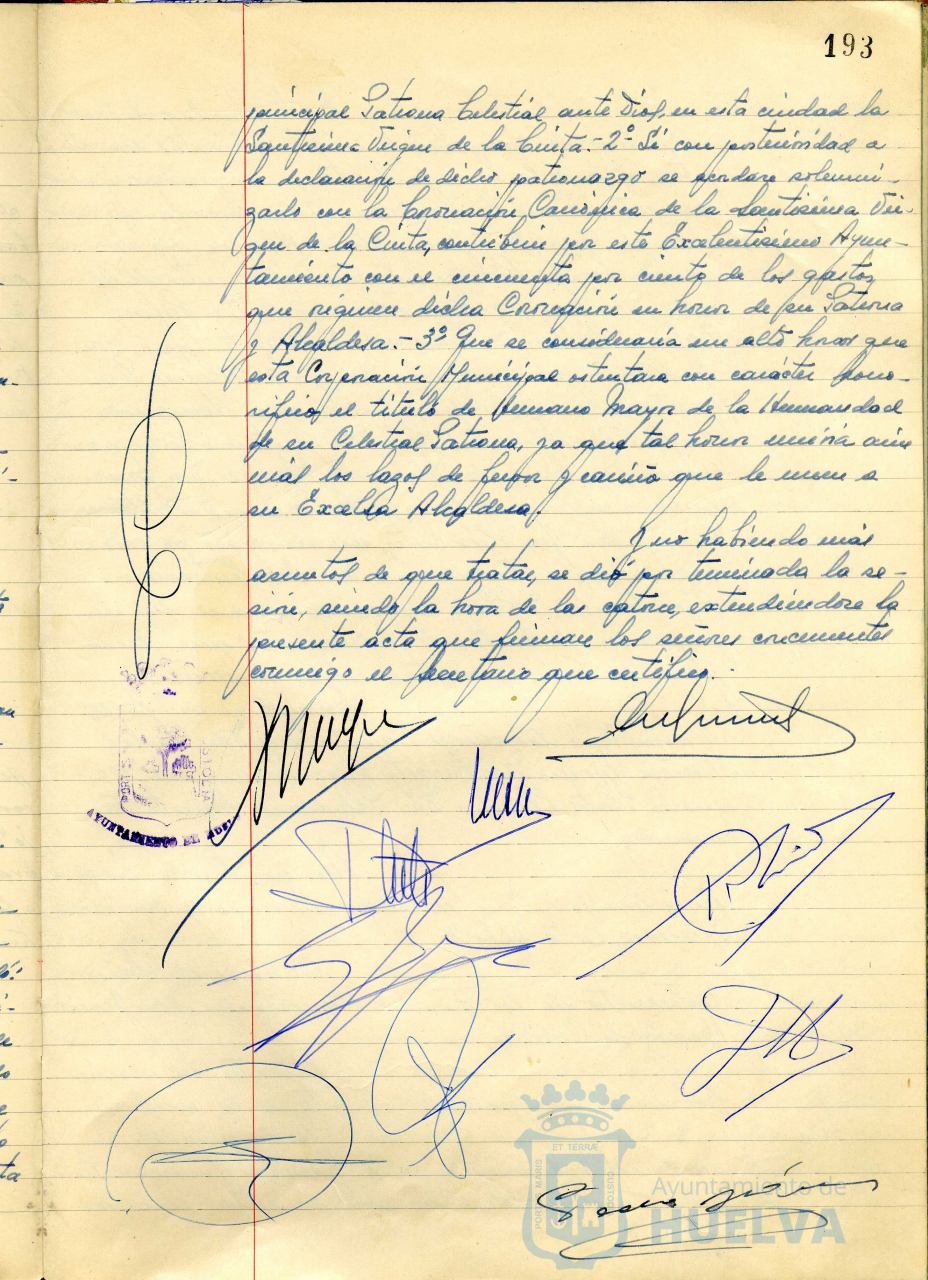 193
principal Patrona Celestial ante Dios, en esta ciudad la
Santisima Virgen de la Cinta.- 2º Si con posterioridad a
la declaración de dicho patronazgo se acordare solemni-
zarlo con la Coronación Canónica de la Santisima Vir-
gen de la Cinta, contribuir por este Excelentisimo Ayun-
tamiento con el cincuenta por ciento de los gastos
que origine dicha Coronación en honor de su Patrona
y Alcaldesa.- 3º Que se consideraria un alto honor que
esta Corporación Municipal ostentara con carácter hono-
rifico, el titulo de Hermano Mayor de la Hermandad
de su Celestial Patrona, ya que tal honor uniria aún
más los lazos de fervor y cariño que le unen a
su Excelsa Alcaldesa.
Y no habiendo más
asuntos de que tratar, se dió por terminada la se-
sión, siendo la hora de las catorce, extendiendose la
presente acta que firman los señores concurrentes
conmigo el Secretario que certifico.-
AYUNTAMIENTO DE
PORTUS MARIS ET TERRÆ CUSTODIA
Ayuntamiento de
HUELVA